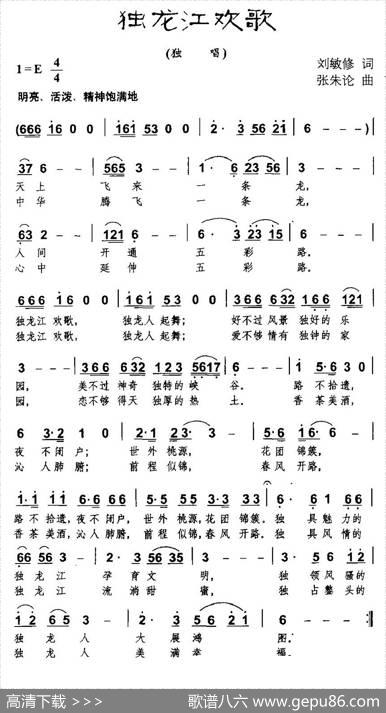 独龙江欢歌
(独 唱)
1=E 4/4
刘敏修 词
张朱论 曲
明亮、活泼、精神饱满地
(666 16 0 0 | 161 53 0 0 | 2·3 56 21 6 - - -)
37 6 - - | 565 3 - - | 1· 6 23 56 | 3 - - -
天上 飞来 一条 龙,
中华 腾飞 一条 龙,
63 2 - - | 121 6 - - | 6·3 23 15 | 6 - - -
人间 开通 五彩 路.
心中 延伸 五彩 路.
666 16 0 0 | 161 53 0 0 | 366 632 166 121
独龙江 欢歌, 独龙人 起舞; 好不过 风景 独好的 乐
独龙江 欢歌, 独龙人 起舞; 爱不够 情有 独钟的 家
3 - - - | 366 632 123 5617 | 6 - 1· 1 11
园, 美不过 神奇 独特的 峡 谷. 路 不拾遗,
园, 恋不够 得天 独厚的 热 土. 香 茶美酒,
6 3·2 1 0 | 2·1 23· | 5·6 16·
夜 不闭户; 世外 桃源, 花团 锦簇,
沁 人肺腑; 前程 似锦, 春风 开路,
路不拾遗,夜不闭户, 世外桃源,花团锦簇. 独 具魅力的
香茶美酒,沁人肺腑, 前程似锦,春风开路. 独 具风情的
66 56 3 - | 2·3 56 35 | 3 - - -
独龙江 孕育文 明, 独 领风骚的
独龙江 流淌甜 蜜, 独 占鳌头的
12 65 3 - | 2·3 56 21 | 6 - - - :||
独 龙 人 大展鸿 图.
独 龙 人 美满幸 福.
高清下载 >>>
歌谱八六 www.gepu86.com